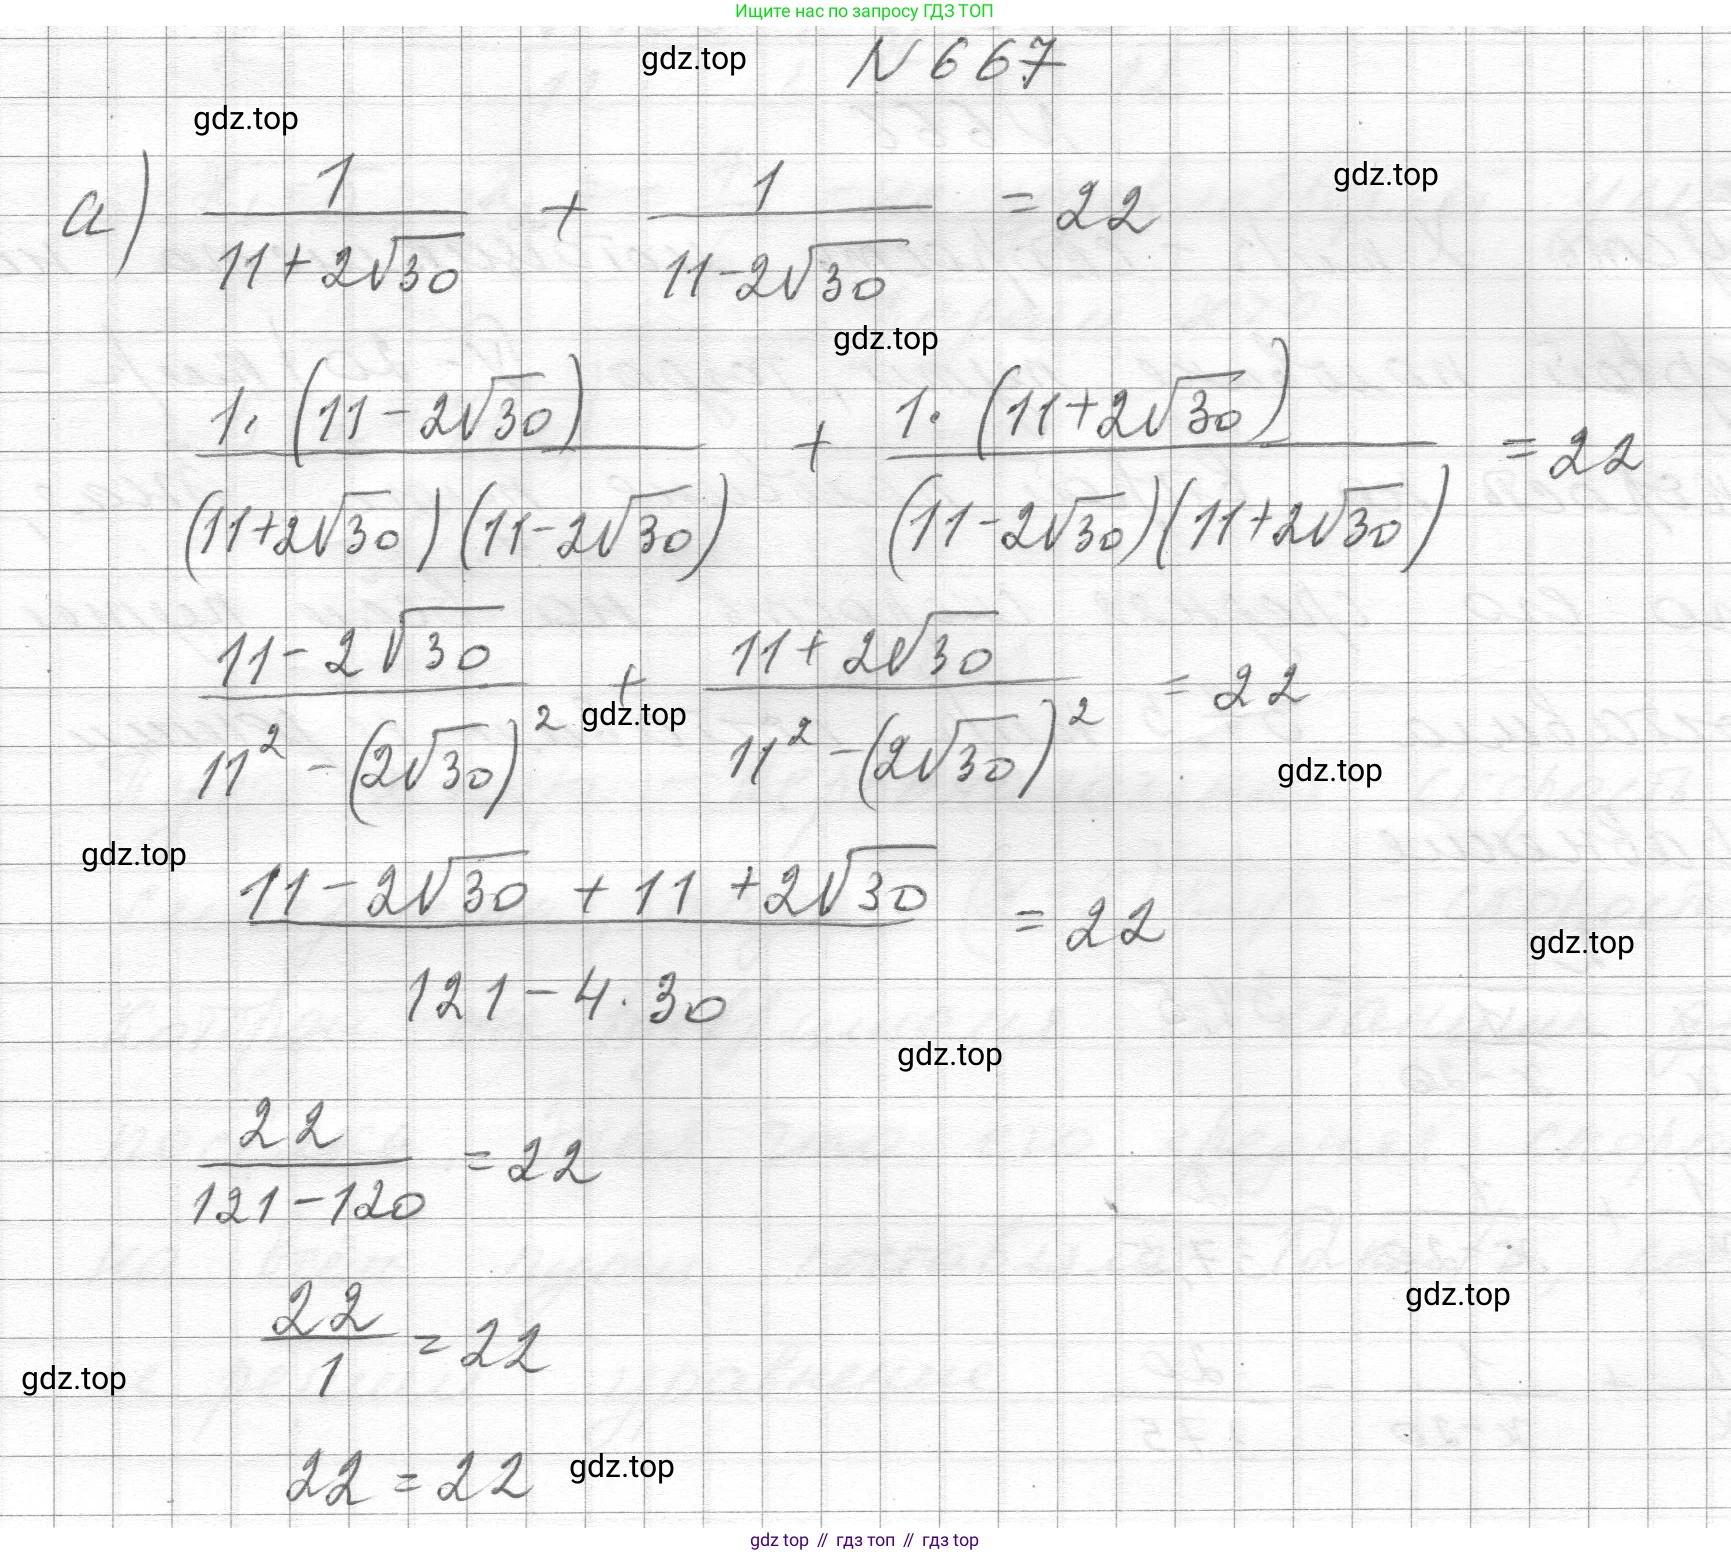 Ищите нас по запросу ГДЗ ТОП
gdz.top
N 667
gdz.top
gdz.top
а) 1/(11+2√30) + 1/(11-2√30) = 22
gdz.top
1·(11-2√30)/((11+2√30)(11-2√30)) + 1·(11+2√30)/((11-2√30)(11+2√30)) = 22
(11-2√30)/(11²-(2√30)²) + (11+2√30)/(11²-(2√30)²) = 22
gdz.top
gdz.top
gdz.top
(11-2√30+11+2√30)/(121-4·30) = 22
gdz.top
gdz.top
22/(121-120) = 22
gdz.top
22/1 = 22
gdz.top
22 = 22
gdz.top
gdz top // гдз топ // gdz top